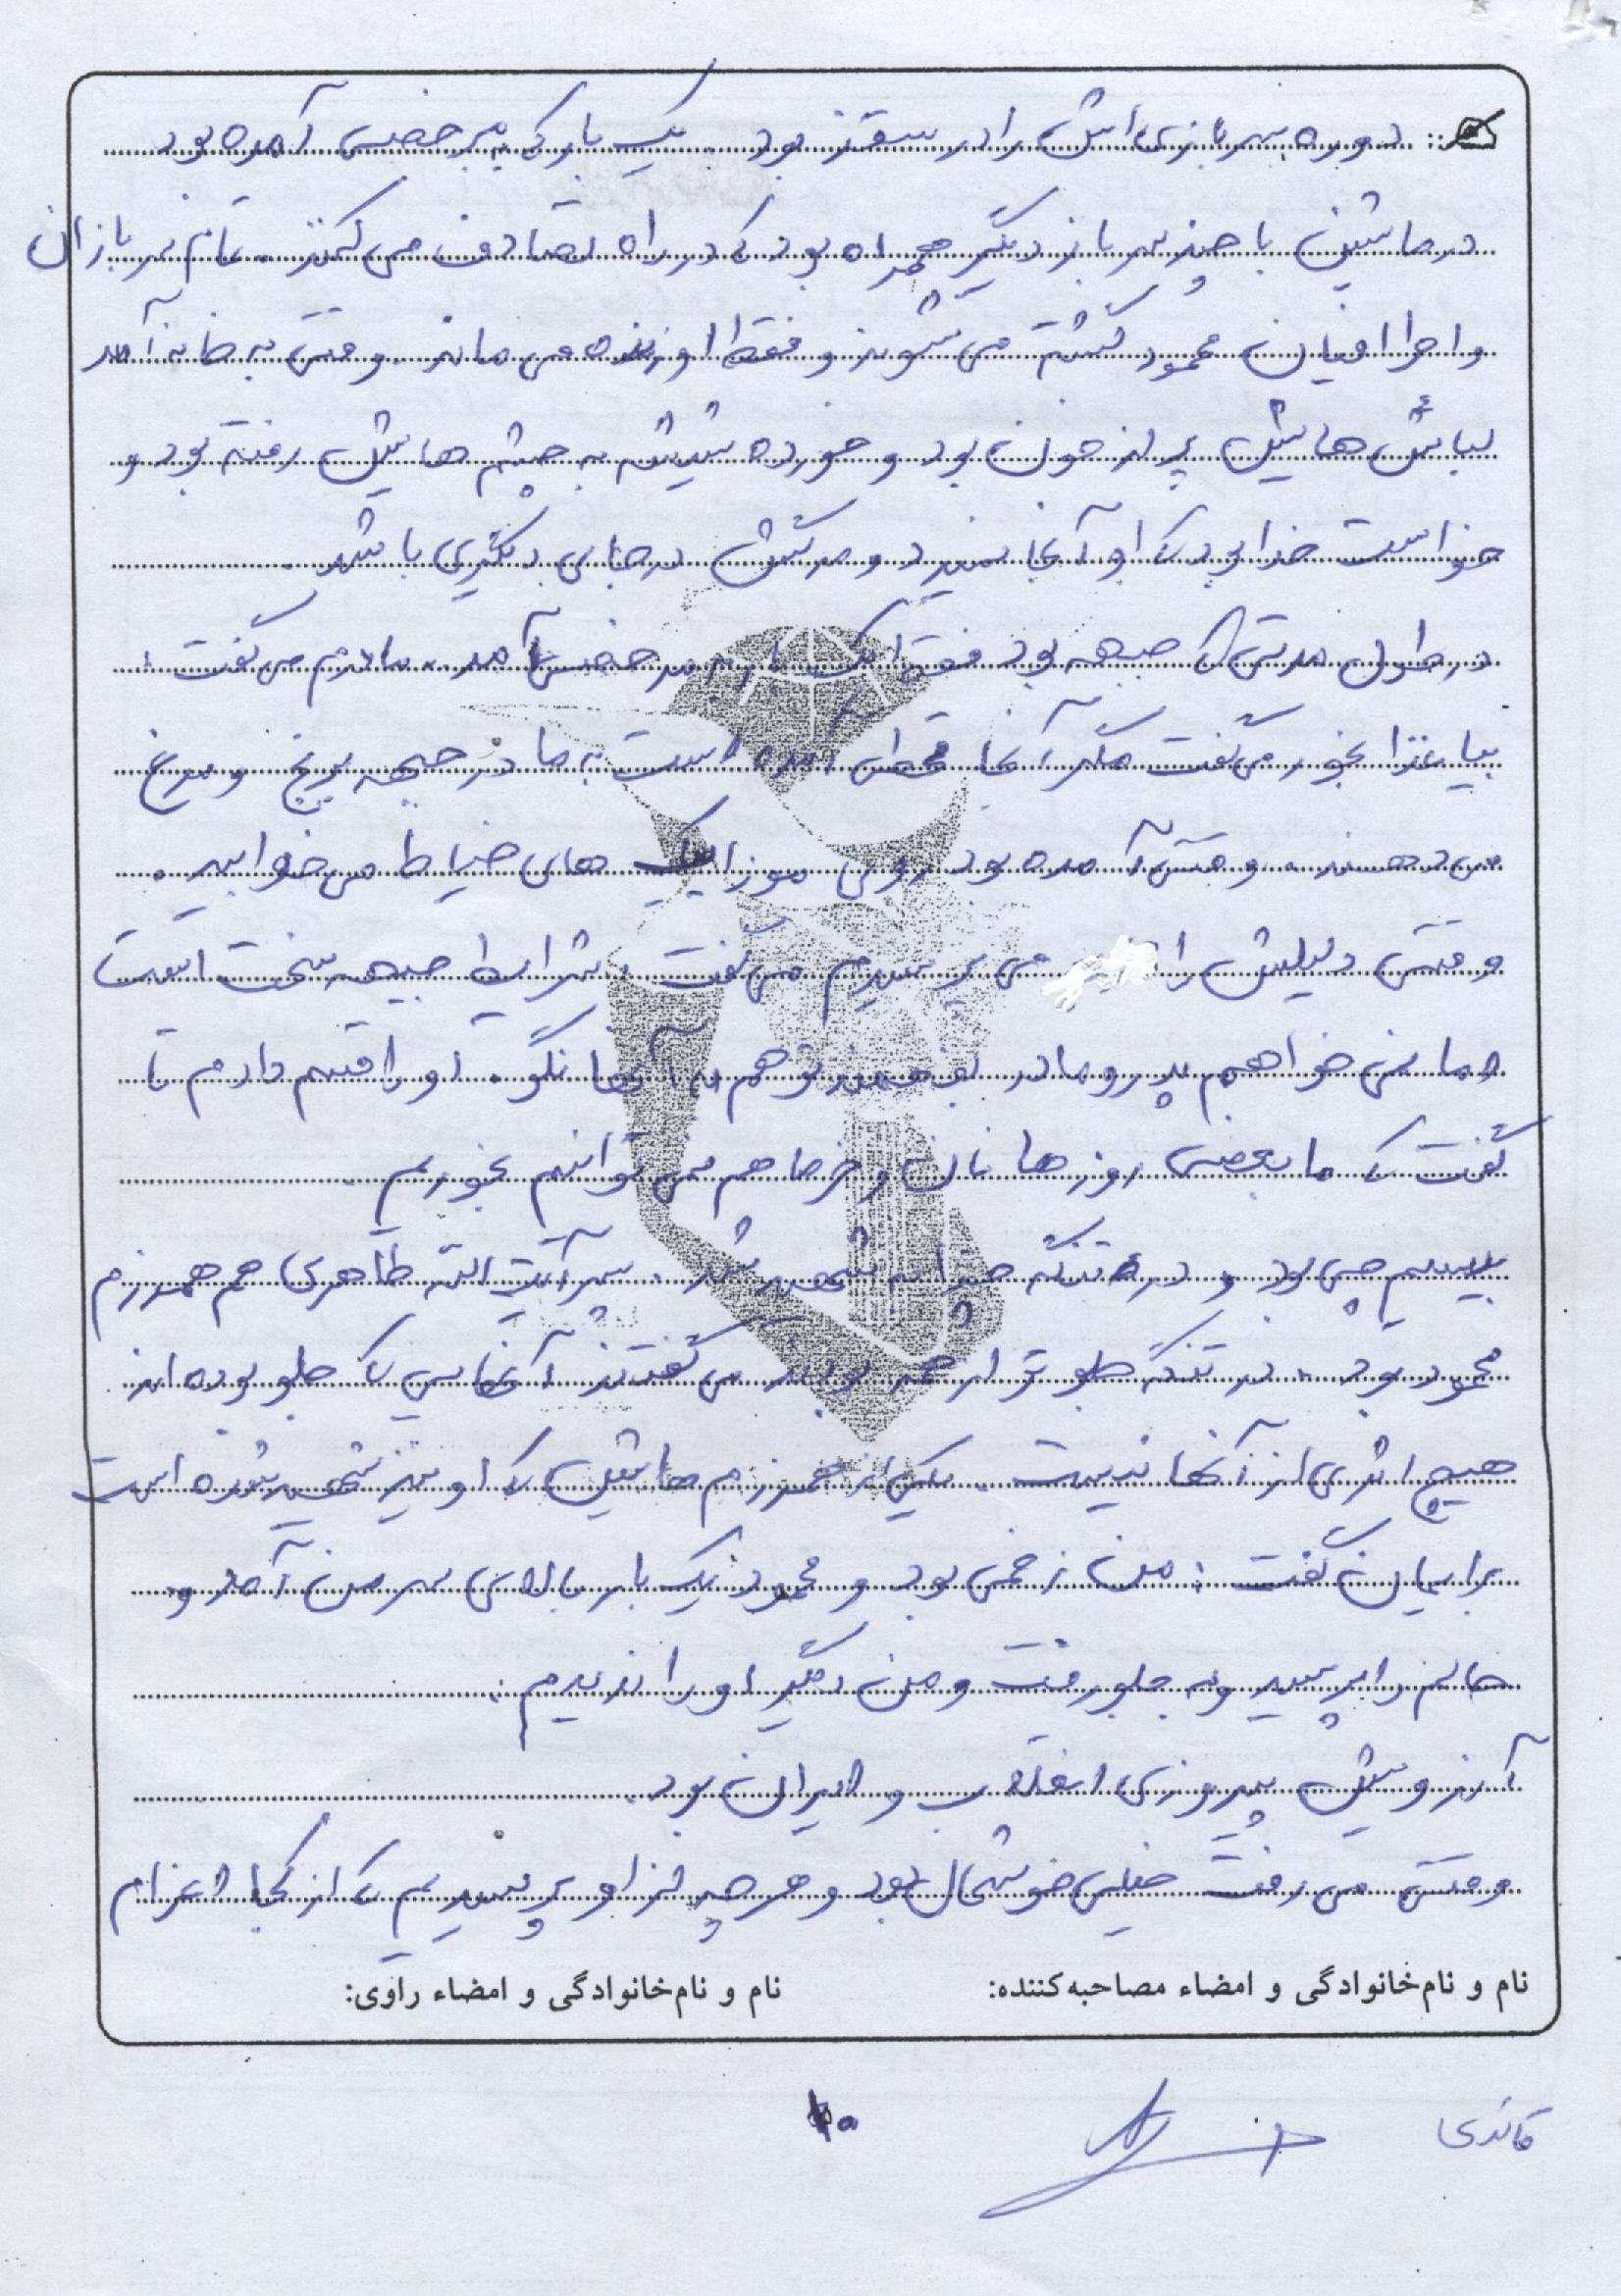 دوره سربازی اش را در سقز بود. یک بار که به مرخصی آمده بود
در ماشین با چند سرباز دیگر همراه بود که در راه تصادف می کنند. تمام سربازان
و اطرافیان محمود کشته می شوند و فقط او زنده می ماند. وقتی به خانه آمد
لباس هایش پر از خون بود و خورده شیشه به چشم هایش رفته بود و
خواست خدا بود که او آنجا نمیرد و مرگش در جای دیگری باشد.
در طول مدتی که جبهه بود فقط یک بار به مرخصی آمد. مادرم می گفت:
بیا غذا بخور می گفت مگر آنجا قحطی آمده است به ما در جبهه برنج و مرغ
می دهند. وقتی آمده بود روی موزاییک های حیاط می خوابید.
وقتی دلیلش را می پرسیدم می گفت شرایط جبهه سخت است
و ما نمی خواهیم پدر و مادر بفهمند تو هم به آنها نگو. او را قسم دادم تا
گفت که ما بعضی روزها نان و خرما هم نمی توانیم بخوریم.
بیسیم چی بود و در تنگه چزابه شهید شد. پسر آیت الله طاهری هم همرزم
محمود بود. در تنگه جلوتر از همه بودند می گفتند آنهایی که جلو بوده اند
هیچ اثری از آنها نیست. یکی از همرزم هایش که او نیز شهید شده است
برایمان گفت: من زخمی بود و محمود یک بار بالای سر من آمد و
حالم را پرسید و به جلو رفت و من دیگر او را ندیدم.
آرزویش پیروزی انقلاب و ایران بود.
وقتی می رفت خیلی خوشحال بود و هر چه از او پرسیدیم که از کجا اعزام
نام و نام‌خانوادگی و امضاء مصاحبه‌کننده:
نام و نام‌خانوادگی و امضاء راوی: